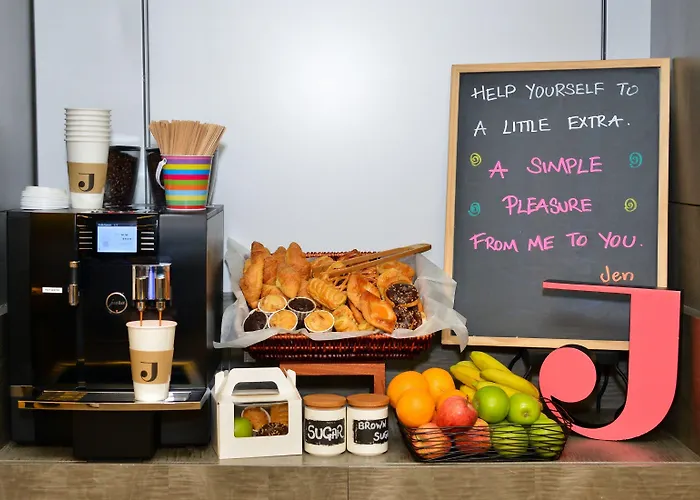 HELP YOURSELF TO
A LITTLE EXTRA.
A SIMPLE
PLEASURE
FROM ME TO YOU.
Jen
J
J
J
jura
SUGAR
BROWN
SUGAR